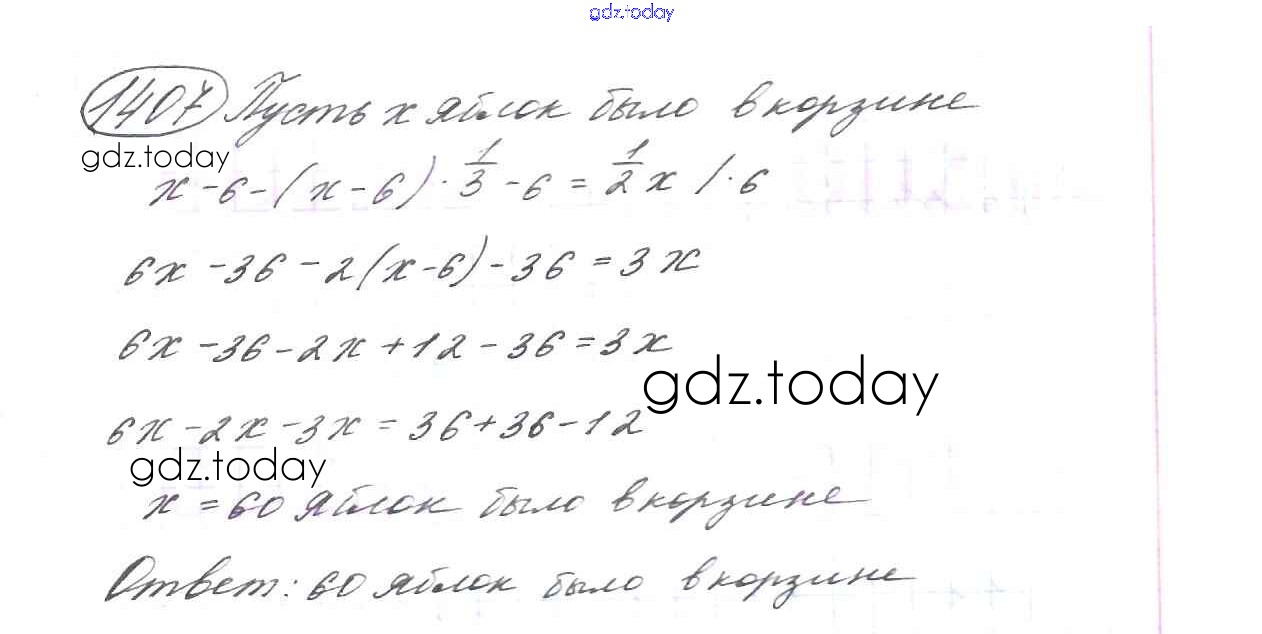 gdz.today
1407 Пусть x яблок было в корзине
gdz.today
x - 6 - (x - 6) · 1/3 - 6 = 1/2 x / · 6
6x - 36 - 2(x - 6) - 36 = 3x
6x - 36 - 2x + 12 - 36 = 3x
gdz.today
6x - 2x - 3x = 36 + 36 - 12
gdz.today
x = 60 яблок было в корзине
Ответ: 60 яблок было в корзине